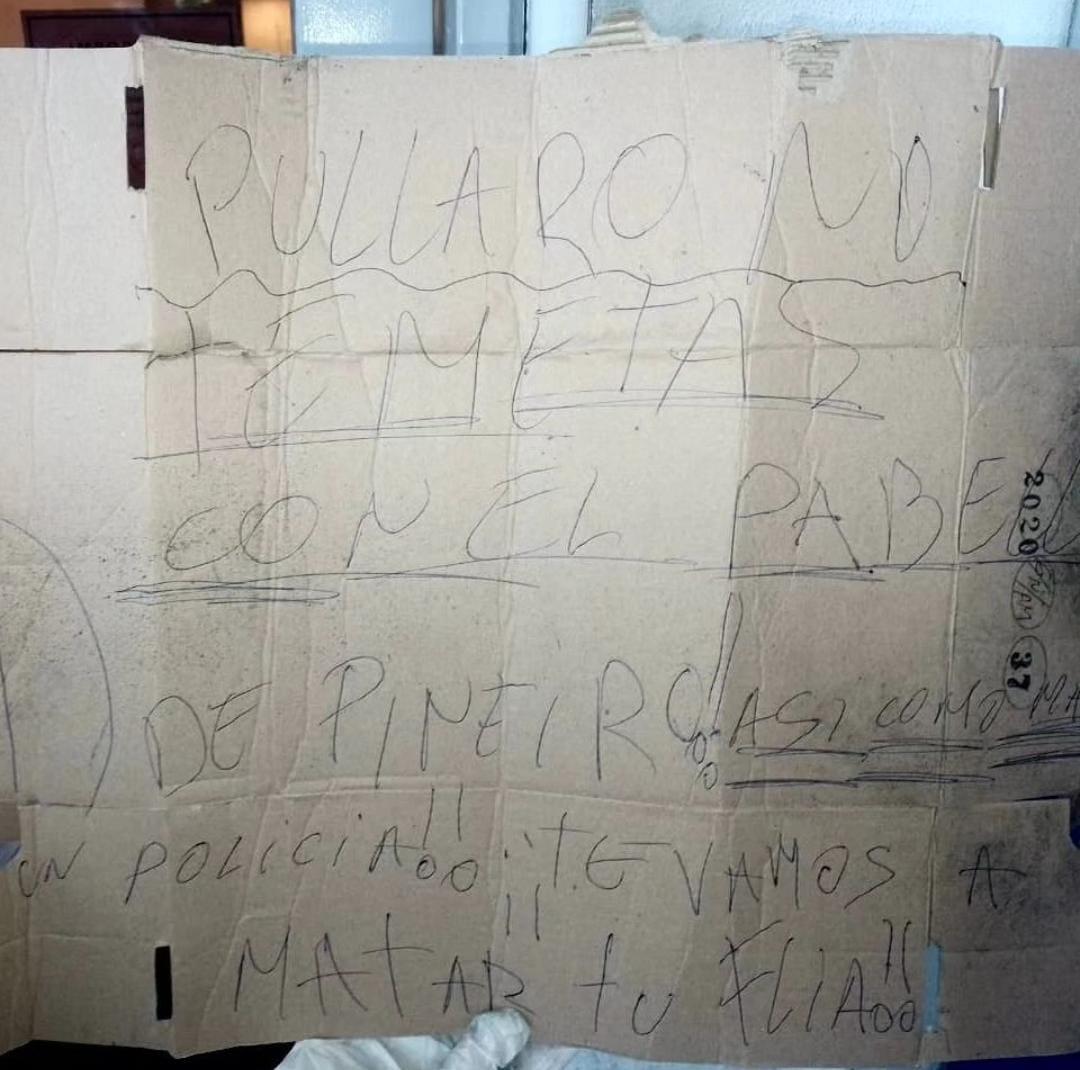 PULLARO NO
TE METAS
CON EL PABEL
DE PINEIRO! ASI COMO MA
UN POLICIA!! ¡¡TE VAMOS A
MATAR tu FLIA!!
2020
37